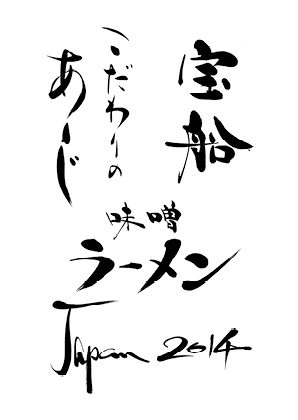 宝船
こだわりの
あじ
味噌
ラーメン
Japan 2014